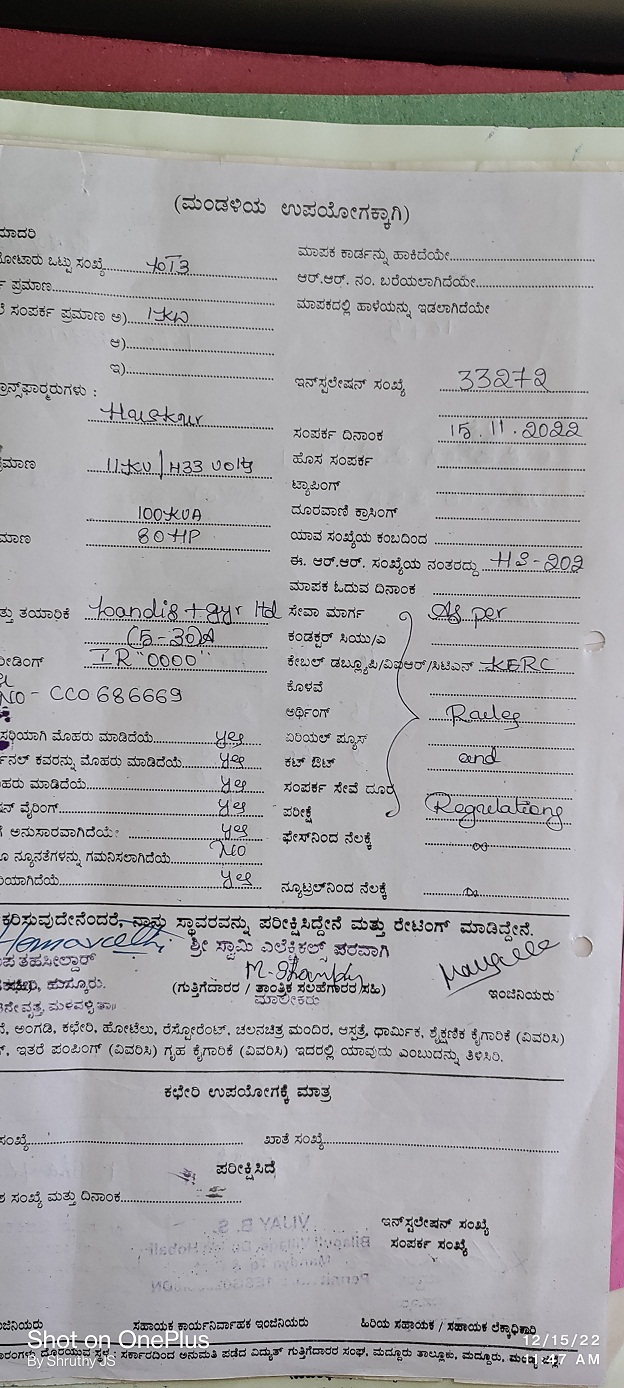 (ಮಂಡಳಿಯ ಉಪಯೋಗಕ್ಕಾಗಿ)
ಮಾದರಿ
ಮಾಪಕ ಕಾರ್ಡನ್ನು ಹಾಕಿದೆಯೇ
ಮೋಟಾರು ಒಟ್ಟು ಸಂಖ್ಯೆ
ಆರ್.ಆರ್. ನಂ. ಬರೆಯಲಾಗಿದೆಯೇ
ಪ್ರಮಾಣ
ಮಾಪಕದಲ್ಲಿ ಹಾಳೆಯನ್ನು ಇಡಲಾಗಿದೆಯೇ
ಸಂಪರ್ಕ ಪ್ರಮಾಣ ಅ) 1KW
ಆ)
ಇ)
ಇನ್‌ಸ್ಟಲೇಷನ್ ಸಂಖ್ಯೆ 33272
ಟ್ರಾನ್ಸ್‌ಫಾರ್ಮರುಗಳು :
ಸಂಪರ್ಕ ದಿನಾಂಕ 15.11.2022
ಮಾಣ 11KV / 433 volts
ಹೊಸ ಸಂಪರ್ಕ
ಟ್ಯಾಪಿಂಗ್
100KVA
ದೂರವಾಣಿ ಕ್ರಾಸಿಂಗ್
ಮಾಣ 80HP
ಯಾವ ಸಂಖ್ಯೆಯ ಕಂಬದಿಂದ
ಈ. ಆರ್.ಆರ್. ಸಂಖ್ಯೆಯ ನಂತರದ್ದು HS-202
ಮಾಪಕ ಓದುವ ದಿನಾಂಕ
ತ್ತು ತಯಾರಿಕೆ Landis + gyr ltd
ಸೇವಾ ಮಾರ್ಗ As per
(5-30)A
ಕಂಡಕ್ಟರ್ ಸಿಯು/ಎ
ರೀಡಿಂಗ್ IR "0000"
ಕೇಬಲ್ ಡಬ್ಲ್ಯೂಪಿ/ವಿಐಆರ್/ಸಿಟಿಎಸ್ KERC
NO - CC0686669
ಕೊಳವೆ
ಅರ್ಥಿಂಗ್ Rules
ಸರಿಯಾಗಿ ಮೊಹರು ಮಾಡಿದೆಯೆ yes
ಏರಿಯಲ್ ಫ್ಯೂಸ್
ನಲ್ ಕವರನ್ನು ಮೊಹರು ಮಾಡಿದೆಯೆ yes
ಕಟ್ ಔಟ್ and
ಹರು ಮಾಡಿದೆಯೆ yes
ಸಂಪರ್ಕ ಸೇವೆ ದೂರ
ಷನ್ ವೈರಿಂಗ್ yes
ಪರೀಕ್ಷೆ Regulations
ಅನುಸಾರವಾಗಿದೆಯೇ yes
ಫೇಸ್‌ನಿಂದ ನೆಲಕ್ಕೆ ∞
ನ್ಯೂನತೆಗಳನ್ನು ಗಮನಿಸಲಾಗಿದೆಯೇ NO
ಯಾಗಿದೆಯೇ yes
ನ್ಯೂಟ್ರಲ್‌ನಿಂದ ನೆಲಕ್ಕೆ
ಕರಿಸುವುದೇನೆಂದರೆ, ನಾನು ಸ್ಥಾವರವನ್ನು ಪರೀಕ್ಷಿಸಿದ್ದೇನೆ ಮತ್ತು ರೇಟಿಂಗ್ ಮಾಡಿದ್ದೇನೆ.
ಶ್ರೀ ಸ್ವಾಮಿ ಎಲೆಕ್ಟ್ರಿಕಲ್ಸ್ ಪರವಾಗಿ
ಉಪ ತಹಸೀಲ್ದಾರ್
(ಗುತ್ತಿಗೆದಾರರ / ತಾಂತ್ರಿಕ ಸಲಹೆಗಾರರ ಸಹಿ)
ಇಂಜಿನಿಯರು
ಮಾಲೀಕರು
ಅಂಗಡಿ, ಕಛೇರಿ, ಹೋಟೆಲು, ರೆಸ್ಟೋರೆಂಟ್, ಚಲನಚಿತ್ರ ಮಂದಿರ, ಆಸ್ಪತ್ರೆ, ಧಾರ್ಮಿಕ, ಶೈಕ್ಷಣಿಕ ಕೈಗಾರಿಕೆ (ವಿವರಿಸಿ)
ಇತರೆ ಪಂಪಿಂಗ್ (ವಿವರಿಸಿ) ಗೃಹ ಕೈಗಾರಿಕೆ (ವಿವರಿಸಿ) ಇದರಲ್ಲಿ ಯಾವುದು ಎಂಬುದನ್ನು ತಿಳಿಸಿರಿ.
ಕಛೇರಿ ಉಪಯೋಗಕ್ಕೆ ಮಾತ್ರ
ಸಂಖ್ಯೆ
ಖಾತೆ ಸಂಖ್ಯೆ
ಪರೀಕ್ಷಿಸಿದೆ
ಸಂಖ್ಯೆ ಮತ್ತು ದಿನಾಂಕ
ಇನ್‌ಸ್ಟಲೇಷನ್ ಸಂಖ್ಯೆ
ಸಂಪರ್ಕ ಸಂಖ್ಯೆ
VIJAY B. S.
ಜಿನಿಯರು
ಸಹಾಯಕ ಕಾರ್ಯನಿರ್ವಾಹಕ ಇಂಜಿನಿಯರು
ಹಿರಿಯ ಸಹಾಯಕ / ಸಹಾಯಕ ಲೆಕ್ಕಾಧಿಕಾರಿ
Shot on OnePlus
By Shruthy JS
12/15/22
11:47 AM
ದೊರೆಯುವ ಸ್ಥಳ : ಸರ್ಕಾರದಿಂದ ಅನುಮತಿ ಪಡೆದ ವಿದ್ಯುತ್ ಗುತ್ತಿಗೆದಾರರ ಸಂಘ, ಮದ್ದೂರು ತಾಲ್ಲೂಕು, ಮದ್ದೂರು, ಮಂಡ್ಯ ಜಿಲ್ಲೆ